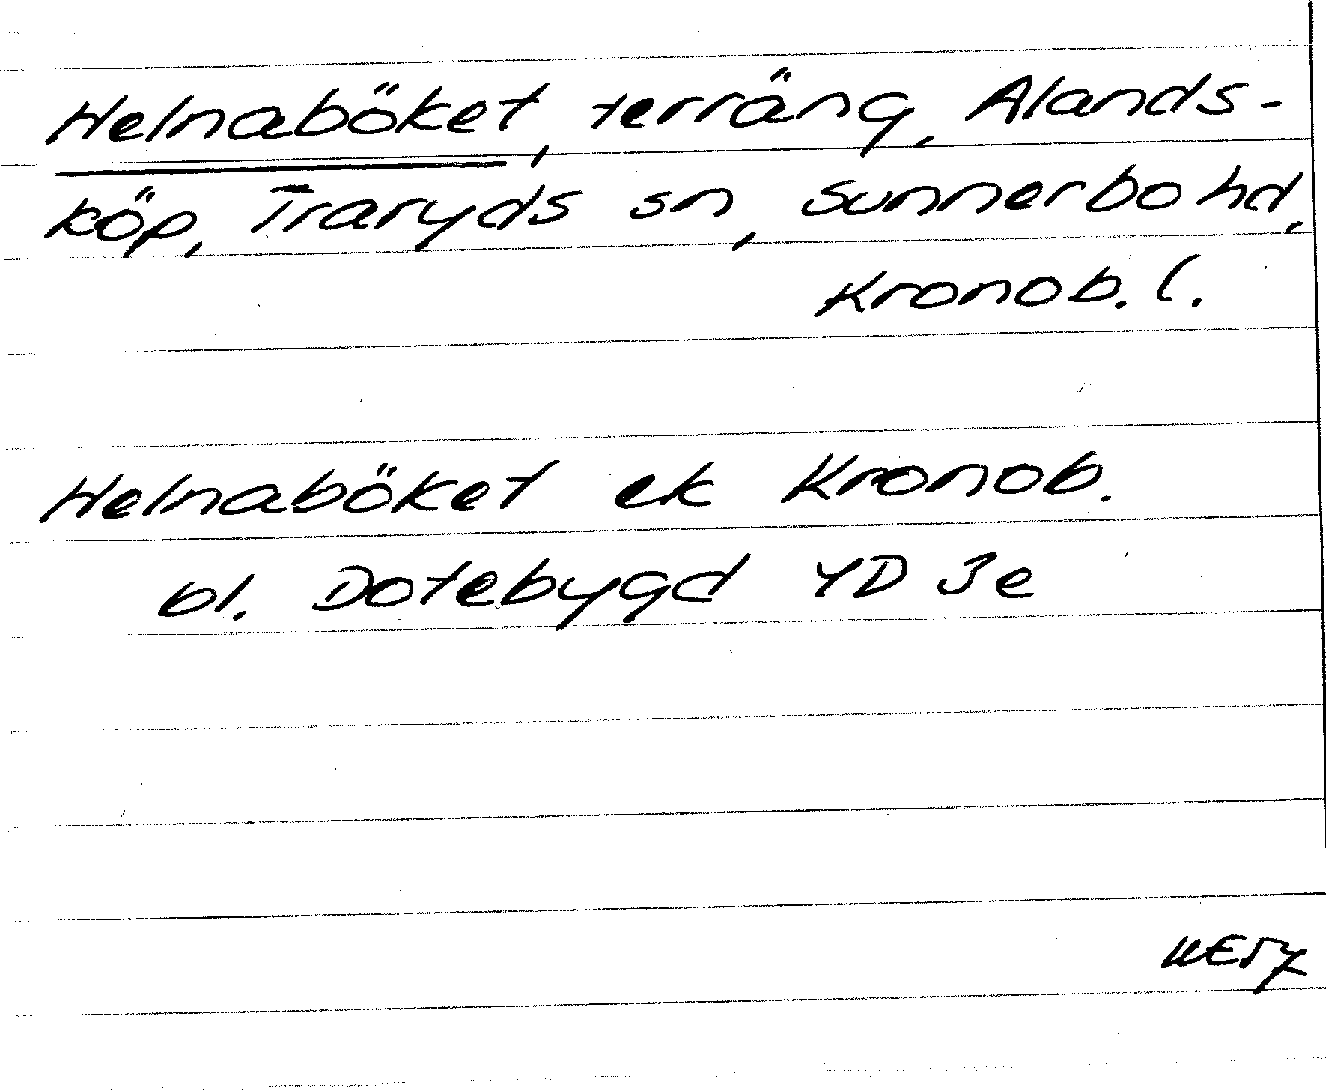 Helnaböket, terräng, Alands-
köp, Traryds sn, Sunnerbo hd,
Kronob. l.
Helnaböket ek Kronob.
bl. Dotebygd 4D 3e